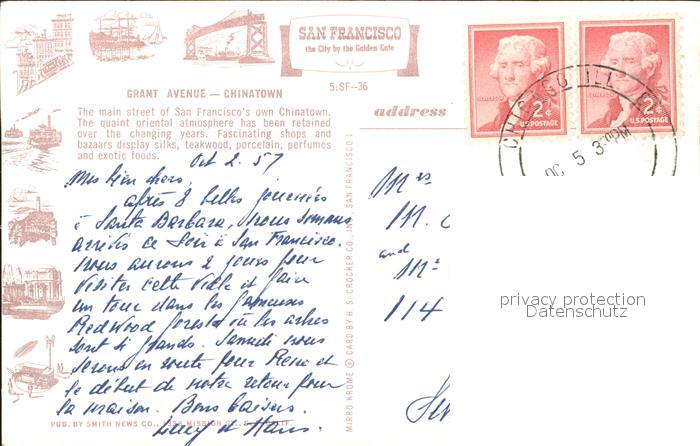 SAN FRANCISCO
the City by the Golden Gate
5:SF-36
GRANT AVENUE — CHINATOWN
The main street of San Francisco's own Chinatown.
The quaint oriental atmosphere has been retained
over the changing years. Fascinating shops and
bazaars display silks, teakwood, porcelain, perfumes
and exotic foods.
Oct 2. 57
Mes bien chers,
après 8 belles journées
à Santa Barbara, nous sommes
arrivés ce soir à San Francisco.
Nous aurons 2 jours pour
visiter cette ville et faire
un tour dans les fameuses
Redwood forests où les arbres
sont si grands. Samedi nous
serons en route pour Reno et
le début de notre retour pour
la maison. Bons baisers.
Lucy et Hans.
PUB. BY SMITH NEWS CO., MISSION ST., CALIF.
MIRRO KROME © CARD BY H. S. CROCKER CO., INC., SAN FRANCISCO 1
address
2¢
U.S. POSTAGE
2¢
U.S. POSTAGE
CHICAGO ILL
OC 5 3-PM
Mrs
M.
and
Mr
114
privacy protection
Datenschutz